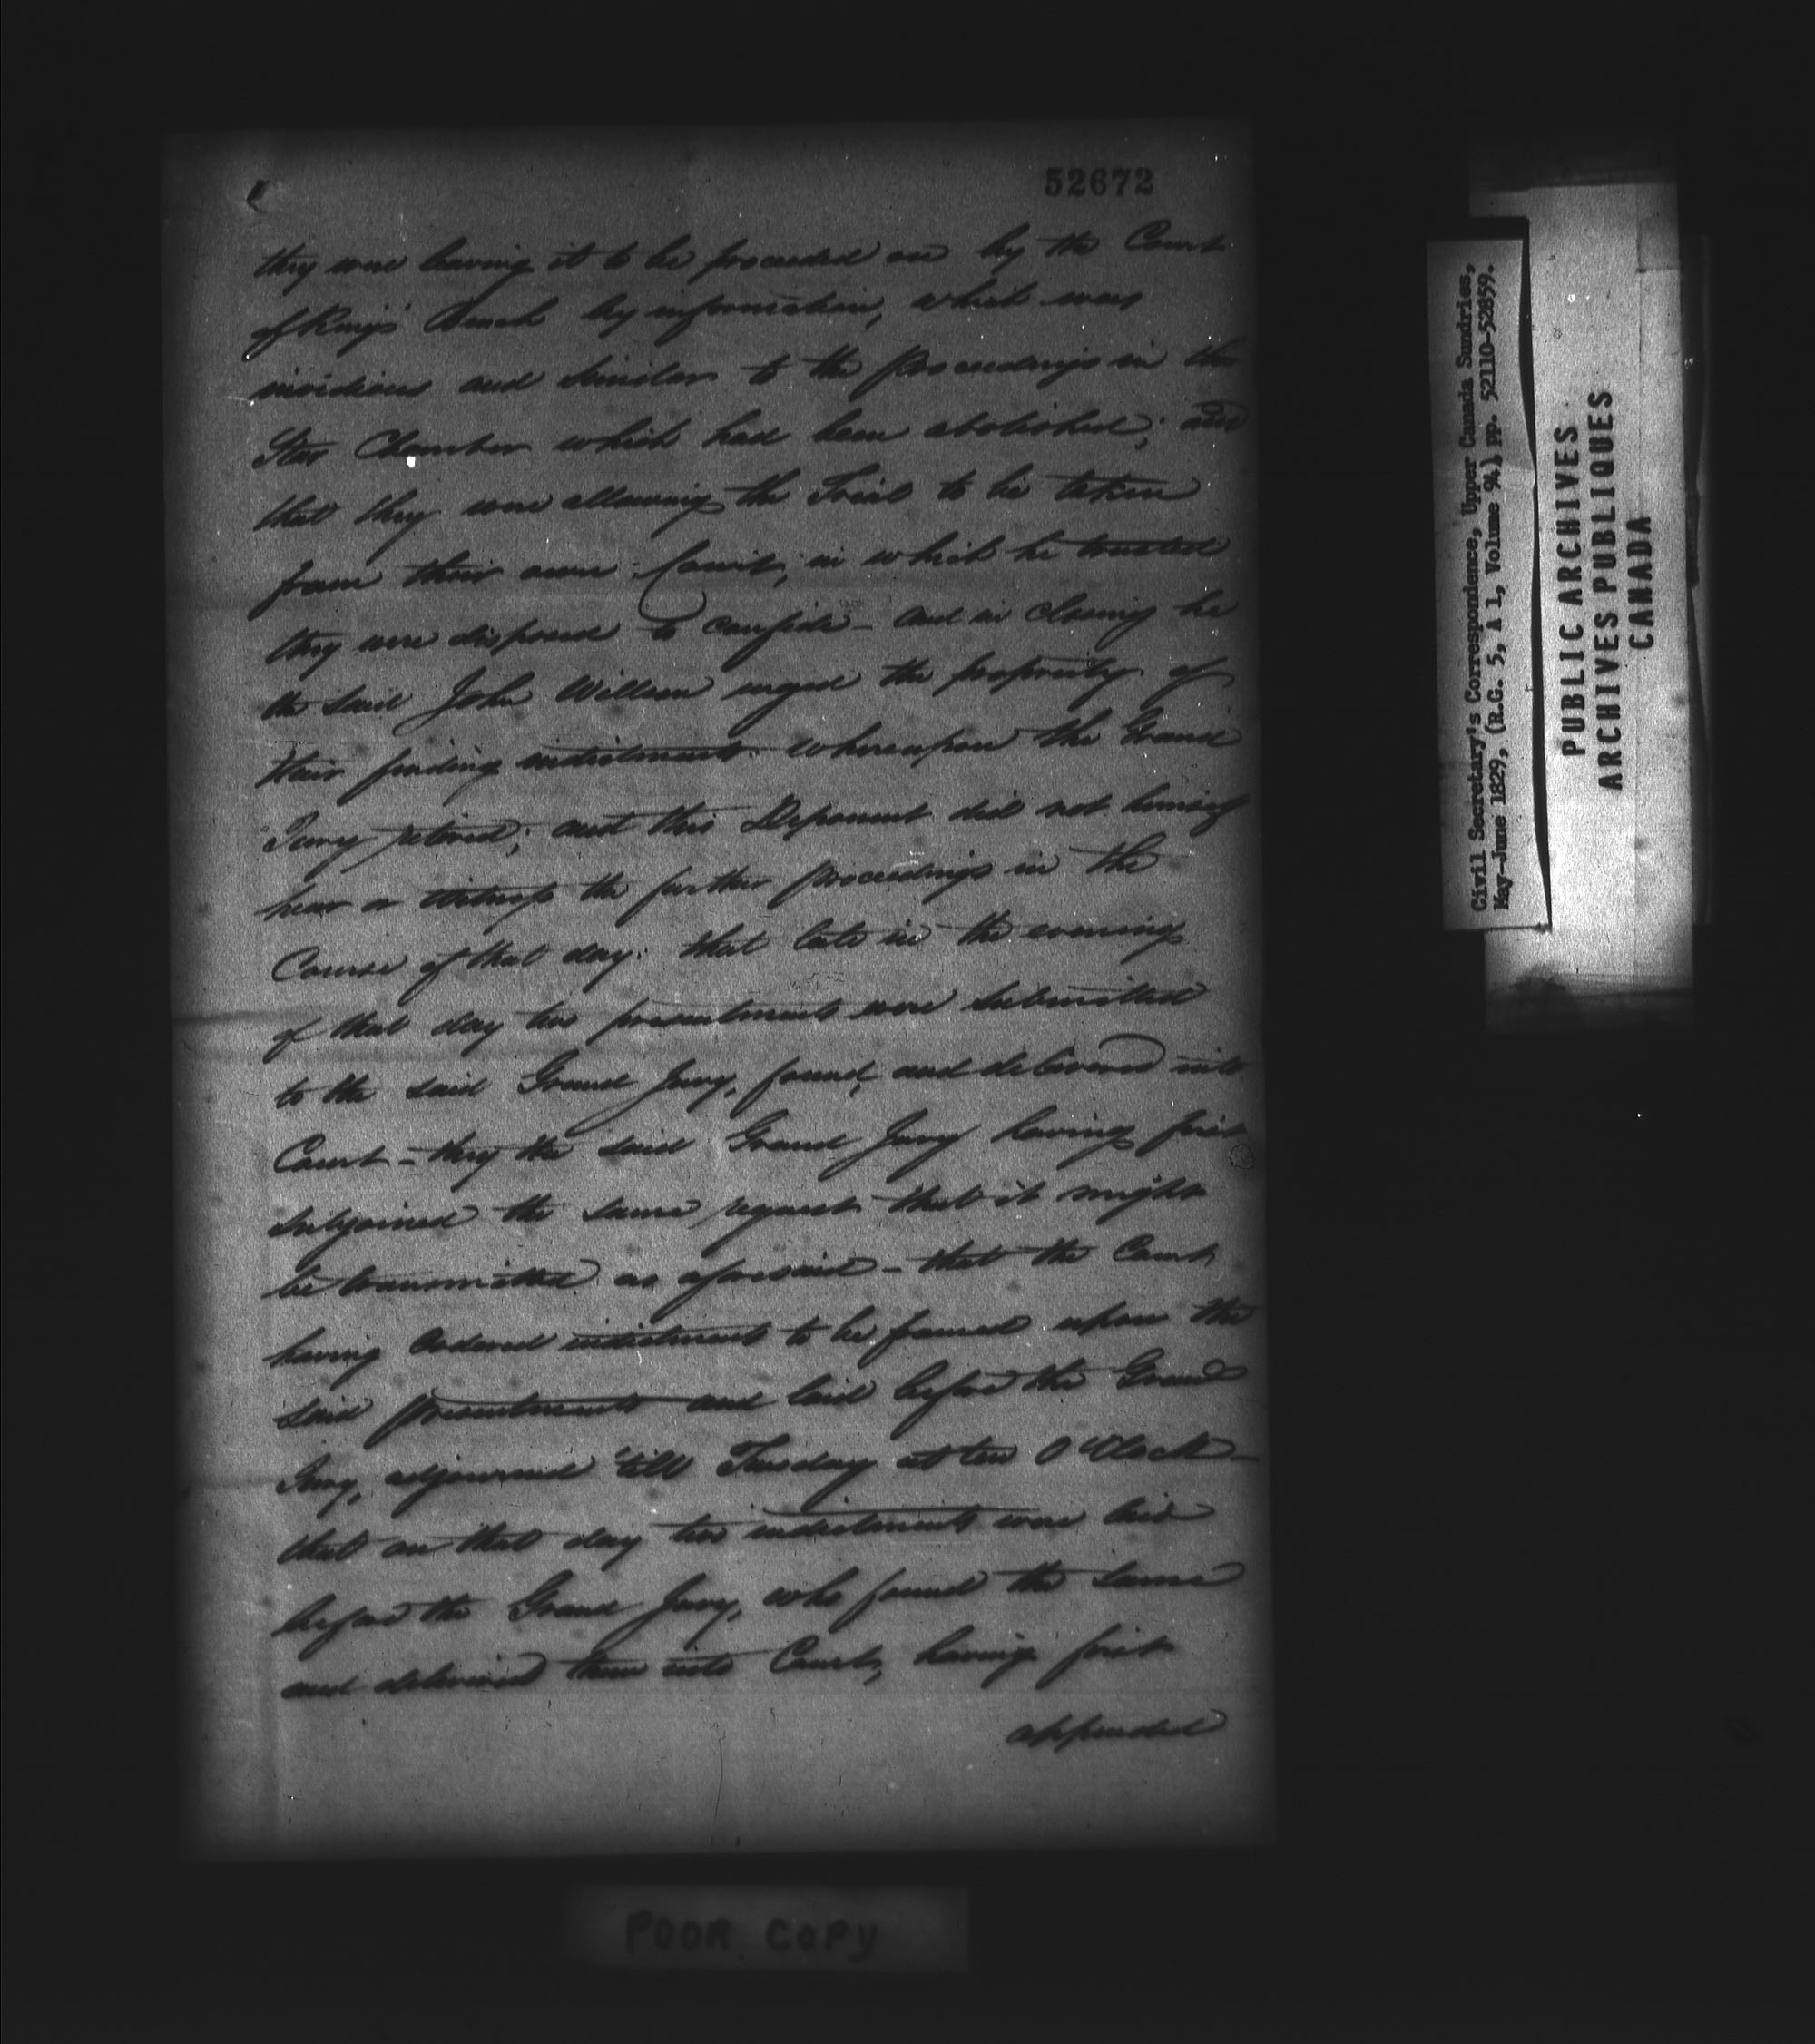 52672
they were leaving it to be proceeded on by the Court
of Kings' Bench by information, which was
invidious and similar to the proceedings in the
Star Chamber which had been abolished; and
that they were allowing the Trial to be taken
from their own Court, in which he trusted
they were disposed to confide - and in closing he
the said John Willson urged the propriety of
their finding indictments. whereupon the Grand
Jury retired; and this Deponent did not himself
hear or witness the further proceedings in the
Course of that day: that late in the evening
of that day two presentments were submitted
to the said Grand Jury, found, and delivered into
Court - they the said Grand Jury having first
subjoined the same request that it might
be transmitted as aforesaid - that the Court
having ordered indictments to be framed upon the
said presentments and laid before the Grand
Jury, adjourned 'till Tuesday at ten O'Clock -
that on that day two indictments were laid
before the Grand Jury, who found the same
and delivered them into Court, having first
appended
POOR COPY
Civil Secretary's Correspondence, Upper Canada Sundries,
May-June 1829, (R.G. 5, A 1, Volume 94) pp. 52110-52859.
PUBLIC ARCHIVES
ARCHIVES PUBLIQUES
CANADA